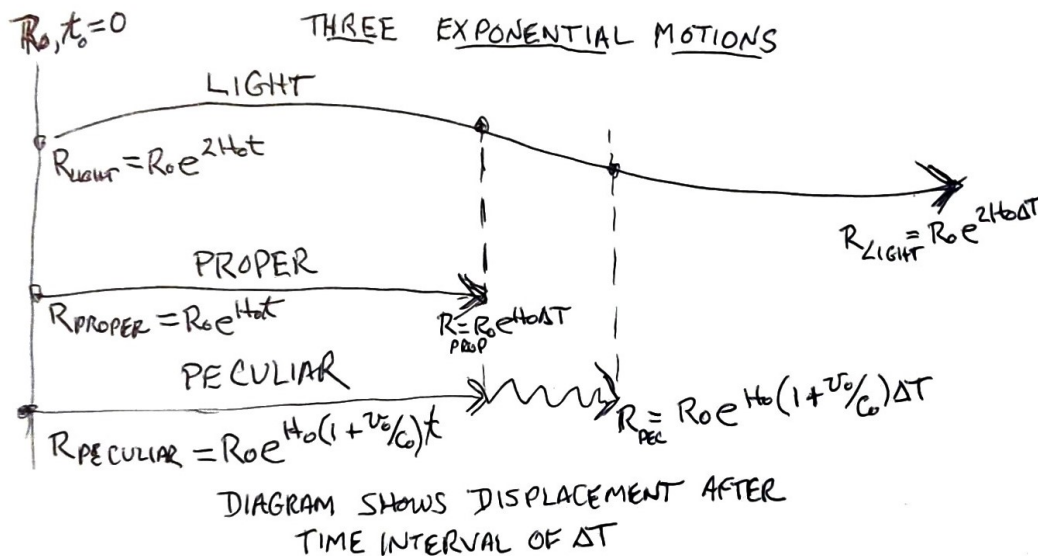 R₀, t₀=0
THREE EXPONENTIAL MOTIONS
LIGHT
R_LIGHT = R₀e^{2H₀t}
R_LIGHT = R₀e^{2H₀ΔT}
PROPER
R_PROPER = R₀e^{H₀t}
R_PROP = R₀e^{H₀ΔT}
PECULIAR
R_PEC = R₀e^{H₀(1+v₀/c₀)ΔT}
R_PECULIAR = R₀e^{H₀(1+v₀/c₀)t}
DIAGRAM SHOWS DISPLACEMENT AFTER
TIME INTERVAL OF ΔT